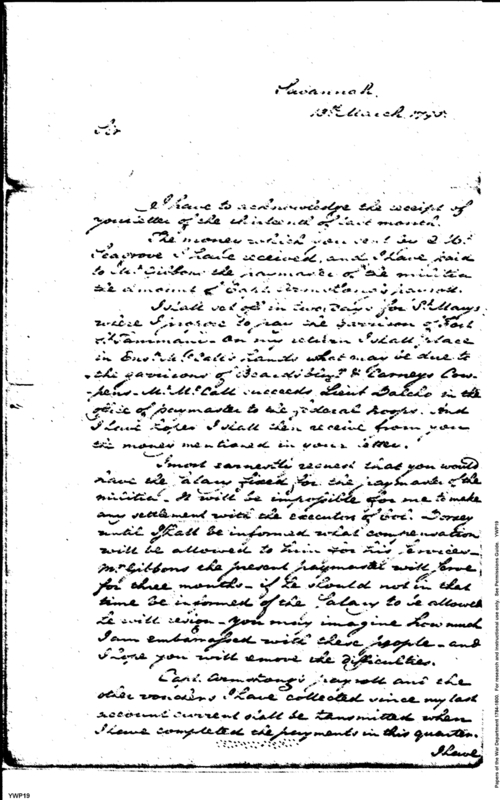 Savannah
13th March 1795.
Sir
I have to acknowledge the receipt of
your letter of the thirteenth of last month.
The money which you sent by
Seagrove I have received, and I have paid
to Mr. Gibbons the paymaster of the militia
the amount of Capt. Armstrong's payroll.
I shall set off in two days for St. Marys
where I propose to pay the Garrison of Fort
St. Tammani. On my return I shall place
in Ensn. McCall's hands what may be due to
the garrisons of Beards & Carneys Cow-
pens. Mr. McCall succeeds Lieut. in the
office of paymaster to the federal troops. And
I have hopes I shall then receive from you
the money mentioned in your letter.
I most earnestly request that you would
have the salary fixed for the paymaster of the
militia. It will be impossible for me to make
any settlement with the executors of Col. Dorsey
until I shall be informed what compensation
will be allowed to him for his services.
Mr. Gibbons the present paymaster will serve
for three months. if he should not in that
time be informed of the Salary to be allowed
he will resign. You may imagine how much
I am embarrassed with these people and
I hope you will remove the difficulties.
Capt. Armstrong's payroll and the
other vouchers I have collected since my last
account current shall be transmitted when
I have completed the payments in this quarter.
I have
YWP19
Papers of the War Department 1784-1800. For research and instructional use only. See Permissions Guide. YWP19